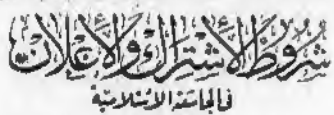 شروط الاشتراك والإعلان
في الجامعة الإسلامية